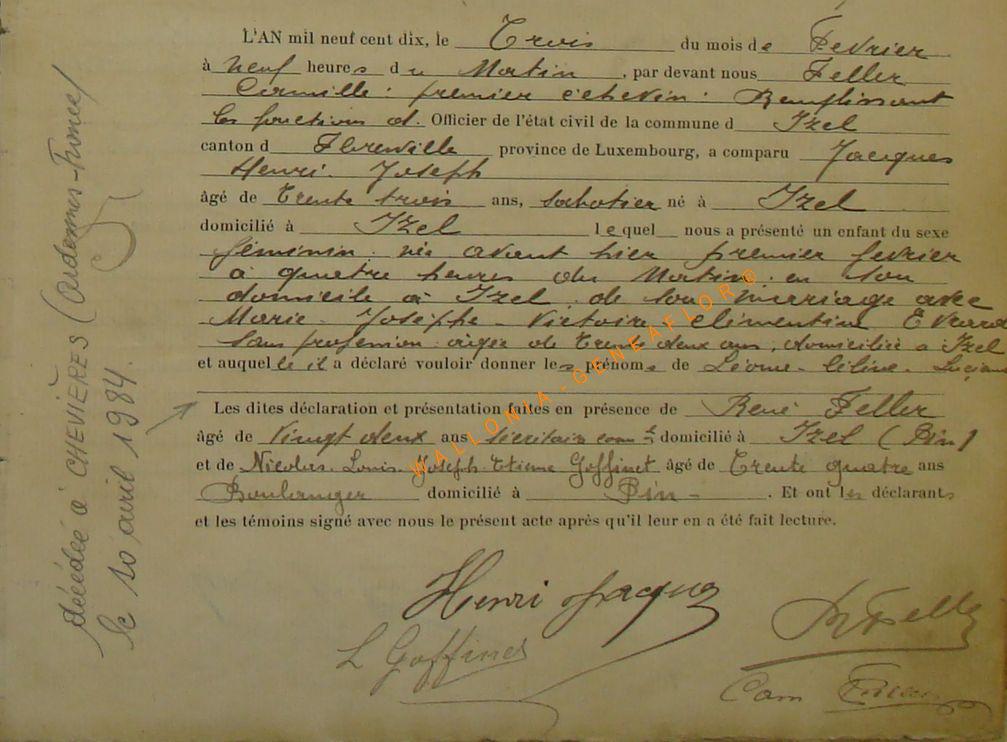 L'AN mil neuf cent dix, le Trois du mois de Fevrier
à neuf heures du Matin, par devant nous Feller
Camille. premier échevin. Remplissant
les fonctions d. Officier de l'état civil de la commune d Izel
canton d Florenville province de Luxembourg, a comparu Jacques
Henri. Joseph
âgé de Trente trois ans, sabotier né à Izel
domicilié à Izel lequel nous a présenté un enfant du sexe
féminin. née avant hier premier fevrier
à quatre heures du Matin. en son
domicile à Izel. de son mariage avec
Marie. Josèphe. Victoire. Clémentine Evrard
sans profession. agée de Trente deux ans, domiciliée à Izel
et auquel il a déclaré vouloir donner les prénoms de Léonie. Céline.
Les dites déclaration et présentation faites en présence de René Feller
âgé de Vingt deux ans domicilié à Izel (Pin)
et de Nicolas. Louis. Joseph. Etienne Goffinet âgé de Trente quatre ans
Boulanger domicilié à Pin. Et ont les déclarants
et les témoins signé avec nous le présent acte après qu'il leur en a été fait lecture.
Henri Jacques
L Goffinet
R Feller
Cam Feller
décédée à CHEVIÈRES (Ardennes-
le 10 avril 1984.
WALLONIA - GENEAFLOR©